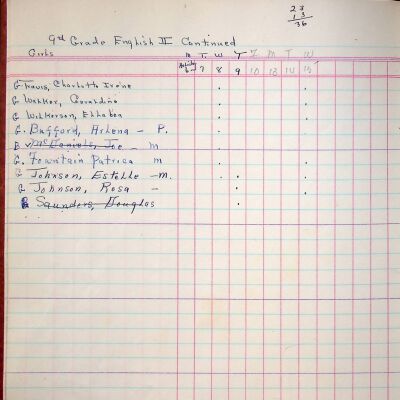 23
13
36
9th Grade English II Continued
Girls M T. W T F M T W
6 7 8 9 10 13 14 15
G Travis, Charlotte Irene
G Walker, Geraldine
G Wilkerson, Ethelen
G. Bufford, Arlena - P.
B McDaniels, Joe - m
G. Fountain Patrica m
G Johnson, Estelle - m.
G Johnson, Rosa -
B Saunders, Douglas